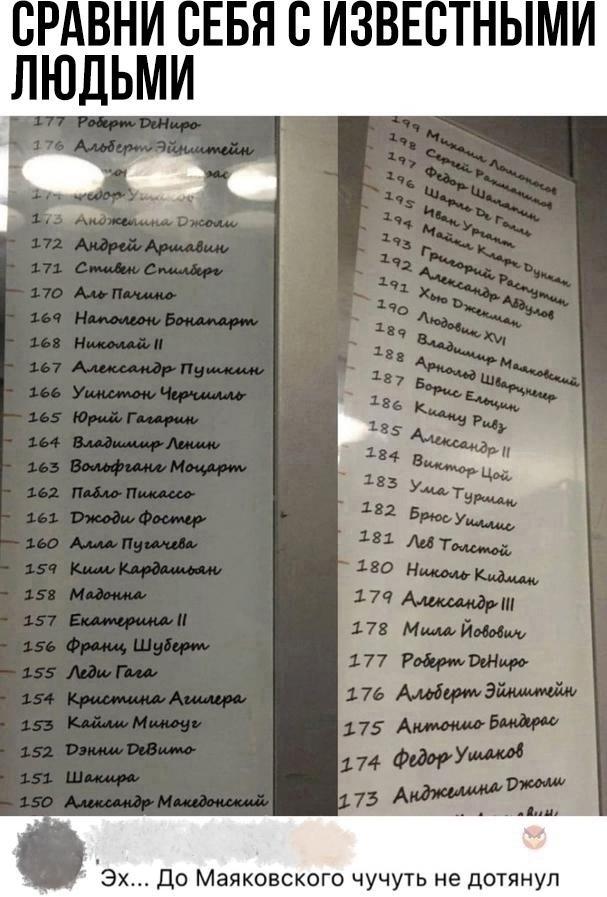 СРАВНИ СЕБЯ С ИЗВЕСТНЫМИ
ЛЮДЬМИ
177 Роберт ДеНиро
176 Альберт Эйнштейн
174 Федор Ушаков
173 Анджелина Джоли
172 Андрей Аршавин
171 Стивен Спилберг
170 Аль Пачино
169 Наполеон Бонапарт
168 Николай II
167 Александр Пушкин
166 Уинстон Черчилль
165 Юрий Гагарин
164 Владимир Ленин
163 Вольфганг Моцарт
162 Пабло Пикассо
161 Джоди Фостер
160 Алла Пугачева
159 Ким Кардашьян
158 Мадонна
157 Екатерина II
156 Франц Шуберт
155 Леди Гага
154 Кристина Агилера
153 Кайли Миноуг
152 Дэнни DeВито
151 Шакира
150 Александр Македонский
199 Михаил Ломоносов
198 Сергей Рахманинов
197 Федор Шаляпин
196 Шарль Де Голль
195 Иван Ургант
194 Майкл Кларк Дункан
193 Григорий Распутин
192 Александр Абдулов
191 Хью Джекман
190 Людовик XVI
189 Владимир Маяковский
188 Арнольд Шварцнегер
187 Борис Ельцин
186 Киану Ривз
185 Александр II
184 Виктор Цой
183 Ума Турман
182 Брюс Уиллис
181 Лев Толстой
180 Николь Кидман
179 Александр III
178 Мила Йовович
177 Роберт DeНиро
176 Альберт Эйнштейн
175 Антонио Бандерас
174 Федор Ушаков
173 Анджелина Джоли
Эх... До Маяковского чучуть не дотянул